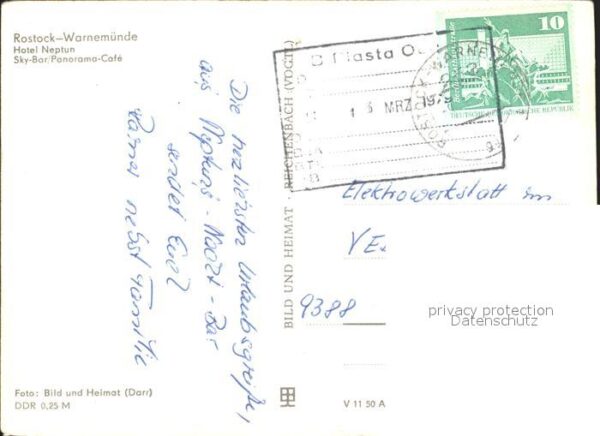 Rostock-Warnemünde
Hotel Neptun
Sky-Bar/Panorama-Café
Die herzlichsten Urlaubsgrüße,
aus Neptuns-Nacht-Bar
sendet Euch
Rainer nebst Familie
Foto: Bild und Heimat (Darr)
DDR 0,25 M
BILD UND HEIMAT · REICHENBACH (VOGTL)
V 11 50 A
1 3 MRZ 1979
10
DEUTSCHE DEMOKRATISCHE REPUBLIK
ROSTOCK-WARNE
Elektrowerkstatt im
VE
9388
privacy protection
Datenschutz